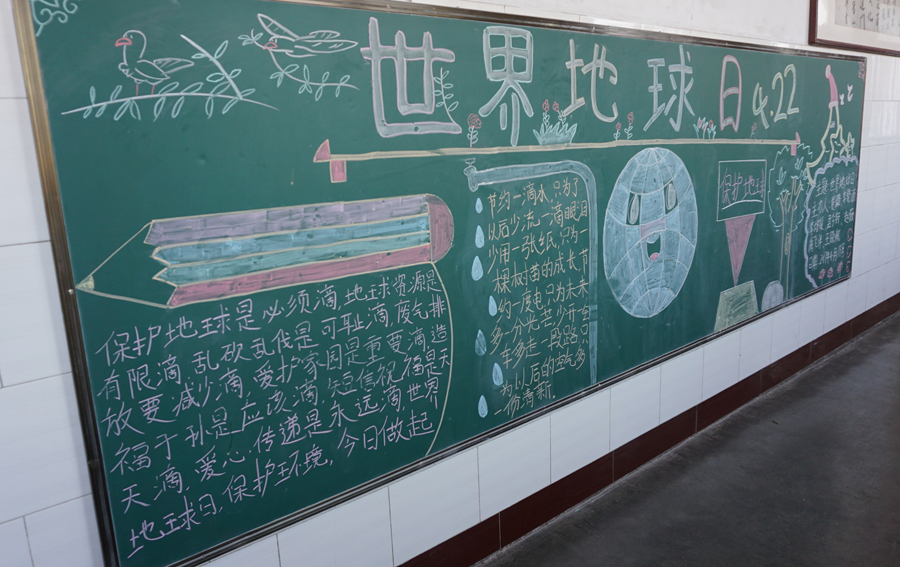 世界地球日 4.22
保护地球是必须滴,地球资源是
有限滴,乱砍乱伐是可耻滴,废气排
放要减少滴,爱护家园是重要滴,造
福子孙是应该滴,短信祝福是天
天滴,爱心传递是永远滴,世界
地球日,保护环境,今日做起
节约一滴水,只为了
以后少流一滴眼泪
少用一张纸,只为一
棵树苗的成长节
约一度电只为未来
多一分光芒少开
车多走一段路只
为以后的空气多
一份清新.
保护地球
主题:世界地球日